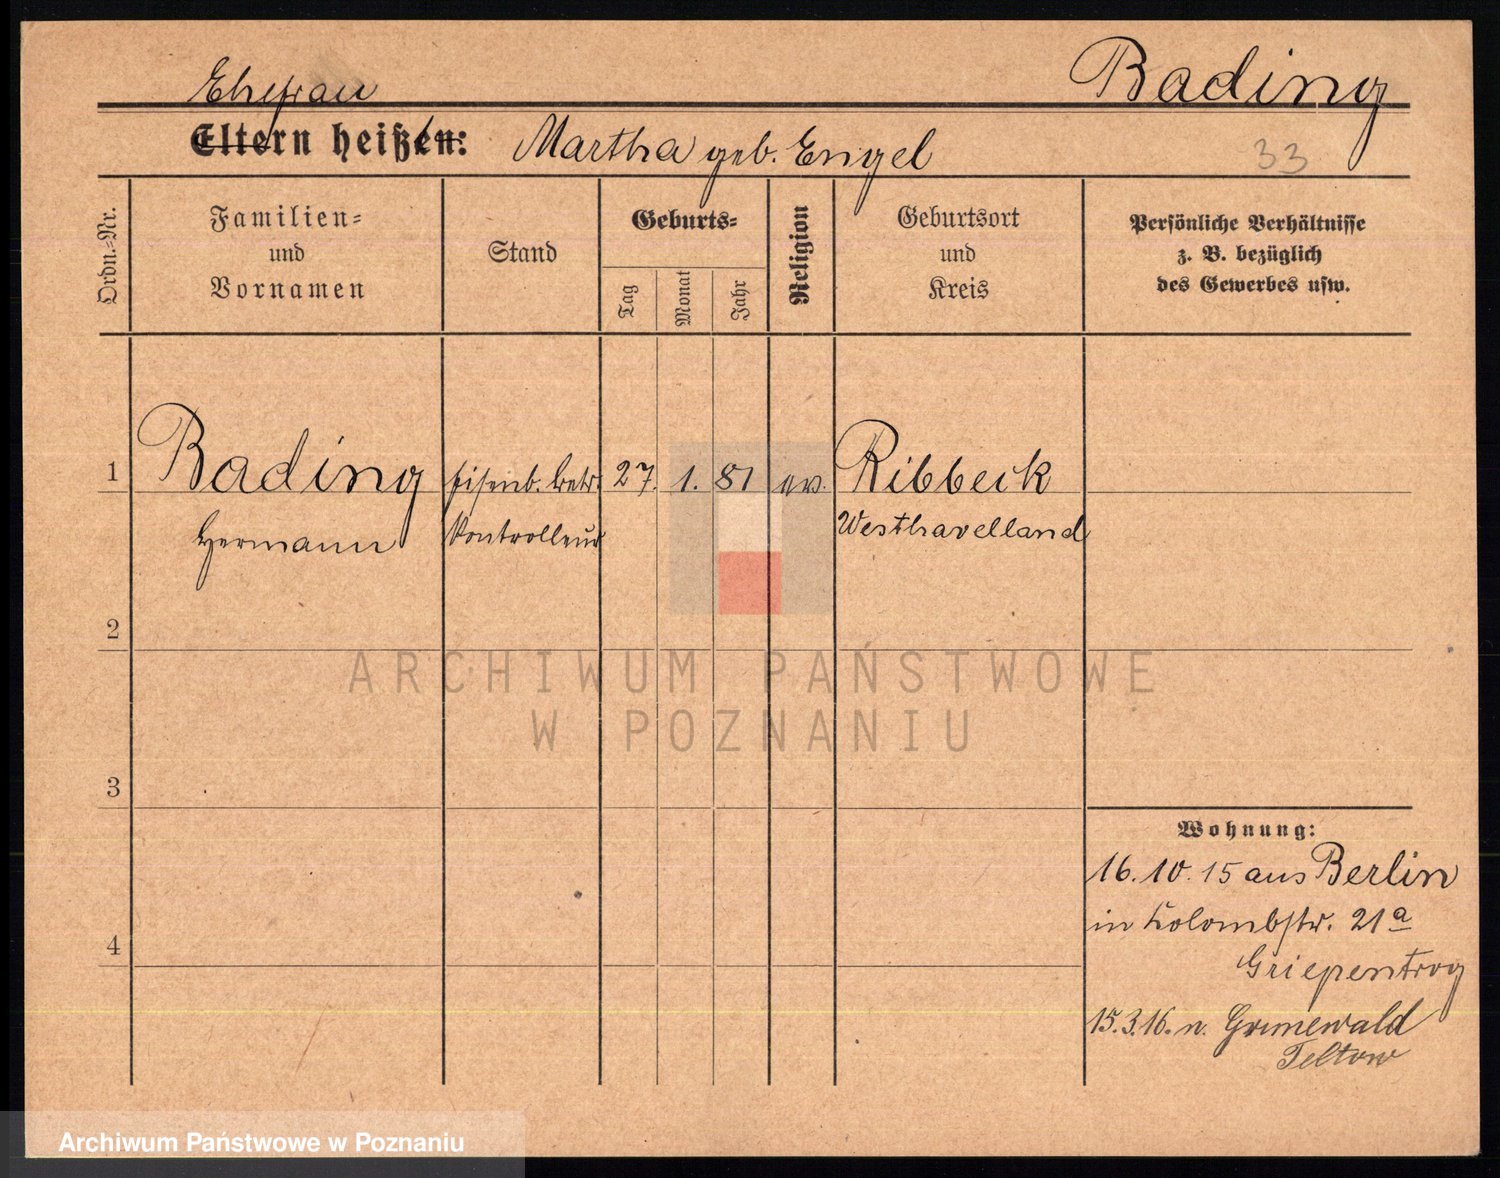 Bading
Ehefrau
Eltern heißen: Martha geb. Engel
33
Ordn.-Nr.
Familien-
und
Vornamen
Stand
Geburts-
Tag
Monat
Jahr
Religion
Geburtsort
und
Kreis
Persönliche Verhältnisse
z. B. bezüglich
des Gewerbes usw.
1 Bading Eisenb. betr. 27. 1. 81 ev. Ribbeck
Hermann Kontrolleur Westhavelland
2
ARCHIWUM PAŃSTWOWE
W POZNANIU
3
Wohnung:
16.10.15 aus Berlin
in Kolombstr. 21a
4
Griepentrog
15.3.16. n. Grunewald
Teltow
Archiwum Państwowe w Poznaniu